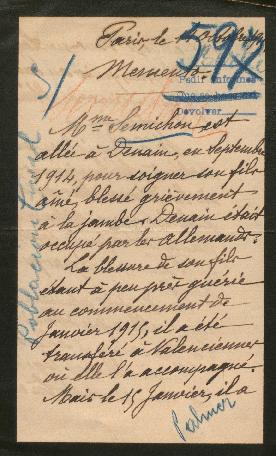 Paris, le 1 Octobre
592
Memento
Pedir informes
Devolver
S/
Mme Semichon est
allée à Denain, en Septembre
1914, pour soigner son fils
aîné, blessé grièvement
à la jambe. Denain était
occupé par les Allemands.
La blessure de son fils
étant à peu près guérie
au commencement de
Janvier 1915, il a été
transféré à Valenciennes
où elle l'a accompagné.
Mais le 15 Janvier, il a
Población Civil
Palmer